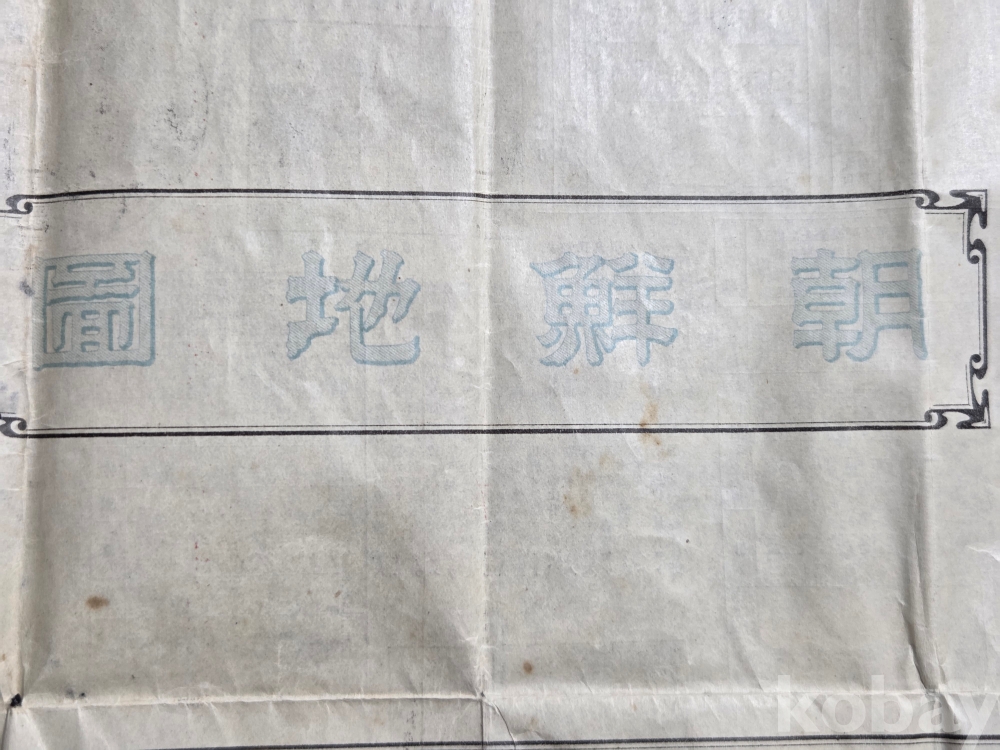 朝鮮地圖
kobay